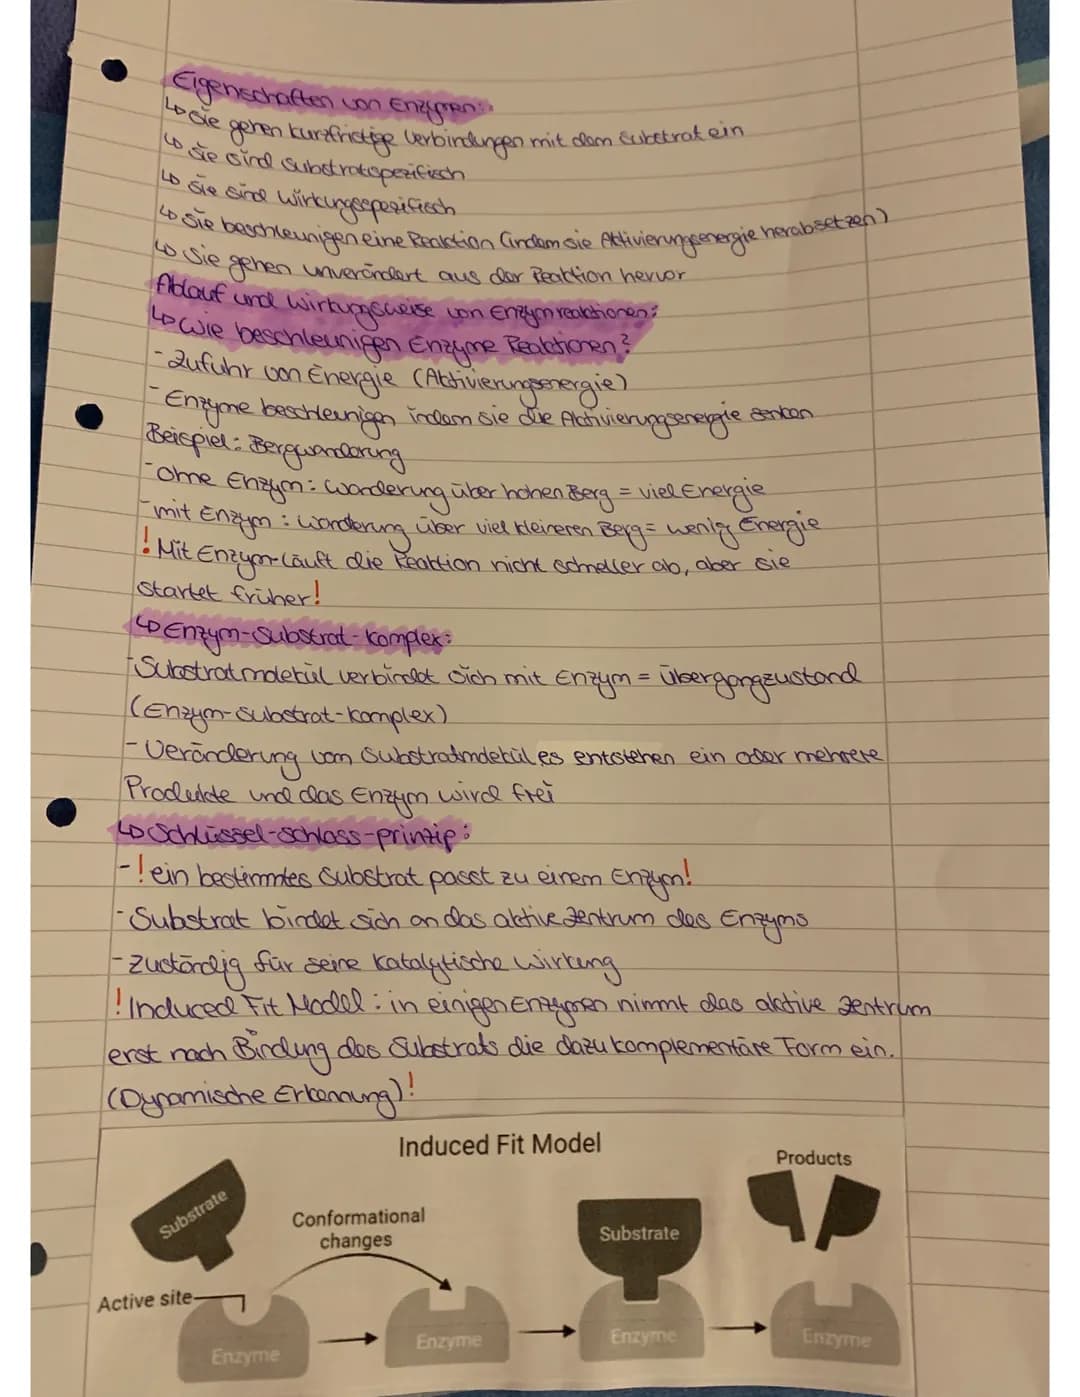 Eigenschaften von Enzymen:
↳ Sie gehen kurzfristige Verbindungen mit dem Substrat ein
↳ Sie sind substratspezifisch
↳ Sie sind wirkungsspezifisch
↳ Sie beschleunigen eine Reaktion (indem sie Aktivierungsenergie herabsetzen)
↳ Sie gehen unverändert aus der Reaktion hervor
Ablauf und Wirkungsweise von Enzymreaktionen:
↳ Wie beschleunigen Enzyme Reaktionen?
- Zufuhr von Energie (Aktivierungsenergie)
- Enzyme beschleunigen indem sie die Aktivierungsenergie senken
Beispiel: Bergwanderung
- ohne Enzym: Wanderung über hohen Berg = viel Energie
- mit Enzym: Wanderung über viel kleineren Berg = wenig Energie
! Mit Enzym läuft die Reaktion nicht schneller ab, aber sie
startet früher!
↳ Enzym-Substrat-Komplex:
- Substratmolekül verbindet sich mit Enzym = Übergangzustand
(Enzym-Substrat-Komplex)
- Veränderung vom Substratmolekül es entstehen ein oder mehrere
Produkte und das Enzym wird frei
↳ Schlüssel-Schloss-prinzip:
- ! ein bestimmtes Substrat passt zu einem Enzym!
- Substrat bindet sich an das aktive Zentrum des Enzyms
- Zuständig für seine katalytische Wirkung
! Induced Fit Model: in einigen Enzymen nimmt das aktive Zentrum
erst nach Bindung des Substrats die dazu komplementäre Form ein.
(Dynamische Erkennung)!
Induced Fit Model
Products
Substrate
Conformational
changes
Substrate
Active site
Enzyme
Enzyme
Enzyme
Enzyme